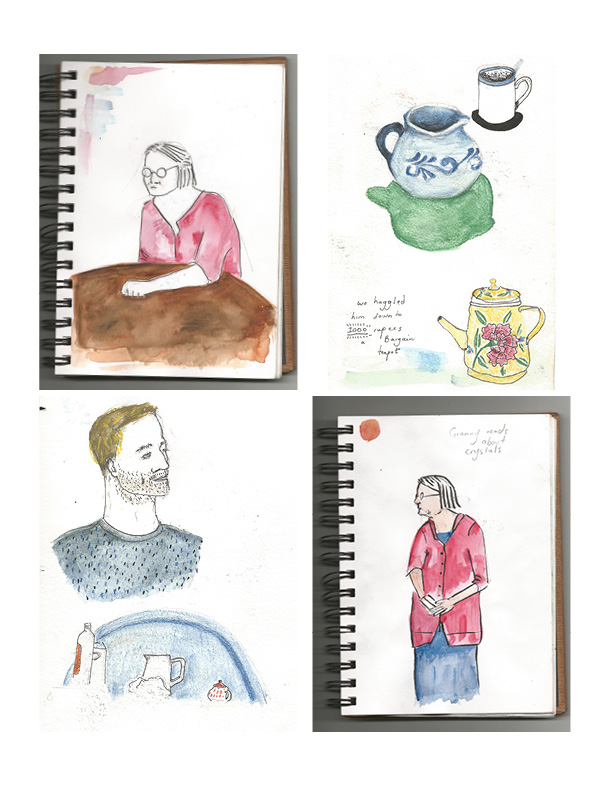 we haggled
him down to
1000 rupees
a Bargain
teapot
Granny reads
about
crystals